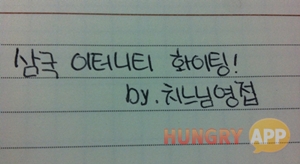 삼국 이터니티 화이팅!
by. 치느님영접
HUNGRY APP